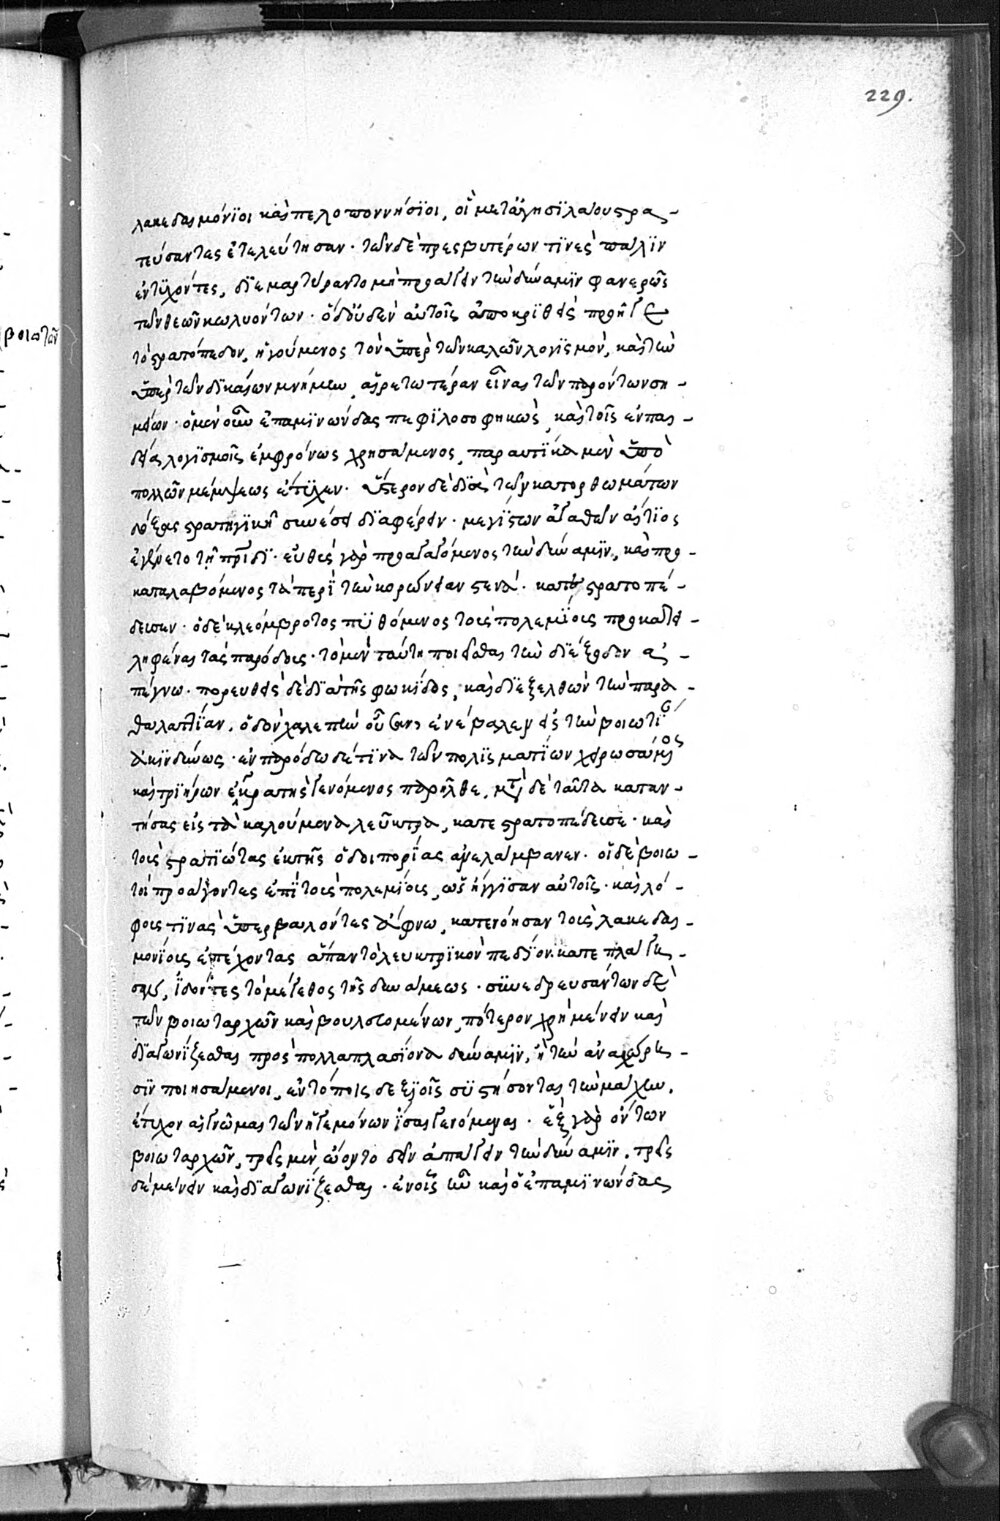 229.
λακεδαιμόνιοι καὶ πελοποννήσιοι, οἱ μετ' ἀγησιλάου στρα-
τεύσαντες ἐτελεύτησαν· τῶν δὲ πρεσβυτέρων τινὲς πάλιν
ἐντυχόντες, διεμαρτύραντο μὴ προάγειν τὴν δύναμιν φανερῶς
τῶν θεῶν κωλυόντων· ὁ δ' οὐδὲν αὐτοῖς ἀποκριθεὶς προῆγε
τὸ στρατόπεδον, ἡγούμενος τὸν ὑπὲρ τῶν καλῶν λογισμὸν, καὶ τὴν
ὑπὲρ τῶν δικαίων μνήμην, αἱρετωτέραν εἶναι τῶν παρόντων ση-
μείων· ὁ μὲν οὖν ἐπαμινώνδας πεφιλοσοφηκὼς, καὶ τοῖς ἐν παι-
δείᾳ λογισμοῖς ἐμφρόνως χρησάμενος, παραυτίκα μὲν ὑπὸ
πολλῶν μέμψεως ἔτυχεν· ὕστερον δὲ διὰ τῶν κατορθωμάτων
δόξας στρατηγικῇ συνέσει διαφέρειν· μεγίστων ἀγαθῶν αἴτιος
ἐγένετο τῇ πατρίδι· εὐθὺς γὰρ προαγαγόμενος τὴν δύναμιν, καὶ προ-
καταλαβόμενος τὰ περὶ τὴν κορώνειαν στενὰ· κατεστρατοπέ-
δευσεν· ὁ δὲ κλεόμβροτος πυθόμενος τοὺς πολεμίους προκατει-
ληφέναι τὰς παρόδους· τὸ μὲν ταύτῃ ποιεῖσθαι τὴν διέξοδον ἀ-
πέγνω· πορευθεὶς δὲ διὰ τῆς φωκίδος, καὶ διεξελθὼν τὴν παρα-
θαλαττίαν. ὁδὸν χαλεπὴν οὖσαν ἐνέβαλεν εἰς τὴν βοιωτί
ἀκινδύνως· ἐν παρόδῳ δέ τινα τῶν πολισματίων χειρωσάμενος
καὶ τριήρων ἐγκρατὴς γενόμενος παρῆλθε. μετὰ δὲ ταῦτα καταν-
τήσας εἰς τὰ καλούμενα λεῦκτρα, κατεστρατοπέδευσε· καὶ
τοὺς στρατιώτας ἐκ τῆς ὁδοιπορίας ἀνελάμβανεν· οἱ δὲ βοιω-
τοὶ προάγοντες ἐπὶ τοὺς πολεμίους, ὡς ἤγγισαν αὐτοῖς· καὶ λό-
φους τινὰς ὑπερβαλόντες ἄφνω, κατενόησαν τοὺς λακεδαι-
μονίους ἐπέχοντας ἅπαν τὸ λευκτρικὸν πεδίον. κατεπλάγη-
σαν, ἰδόντες τὸ μέγεθος τῆς δυνάμεως· συνεδρευσάντων δὲ
τῶν βοιωταρχῶν καὶ βουλευομένων, πότερον χρὴ μένειν καὶ
διαγωνίζεσθαι πρὸς πολλαπλασίονα δύναμιν, ἢ τὴν ἀναχώρη-
σιν ποιησάμενοι, ἐν τόποις δεξιοῖς συστήσονται τὴν μάχην.
ἔτυχον αἱ γνῶμαι τῶν ἡγεμόνων ἴσαι γενόμεναι· ἓξ γὰρ ὄντων
βοιωταρχῶν, τρεῖς μὲν ᾤοντο δεῖν ἀπάγειν τὴν δύναμιν. τρεῖς
δὲ μένειν καὶ διαγωνίζεσθαι· ἐν οἷς ἦν καὶ ὁ ἐπαμινώνδας
βοιωτῶν